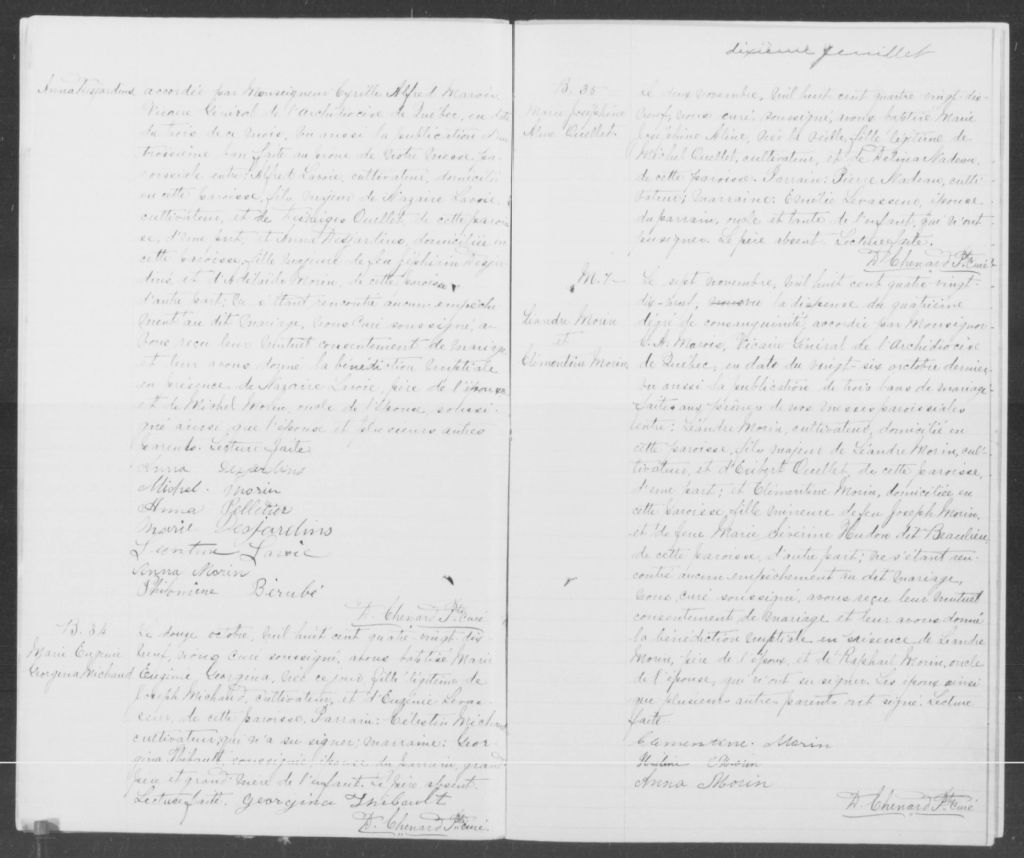 Anna Desjardins
accordée par Monseigneur Cyrille Alfred Marois
Vicaire Général de l'Archidiocèse de Québec, en date
du trois de ce mois, vu aussi la publication d'un
troisième ban faite au prône de notre messe pa-
roissiale entre: Alfred Lavoie, cultivateur, domicilié
en cette paroisse, fils majeur de Nazaire Lavoie,
cultivateur, et de Hedwiges Ouellet de cette parois-
se, d'une part, et Anna Desjardins, domiciliée en
cette paroisse, fille majeure de feu Desjar-
dins et d'Adélaïde Morin, de cette paroisse
d'autre part; ne s'étant rencontré aucun empêche
ment au dit mariage, nous curé soussigné, a-
vons reçu leur mutuel consentement de mariage
et leur avons donné la bénédiction nuptiale
en présence de Nazaire Lavoie, père de l'époux
et de Michel Morin, oncle de l'épouse, soussi-
gné ainsi que l'épouse et plusieurs autres
parents. Lecture faite.
Anna Desjardins
Michel Morin
Anna Pelletier
Marie Desjardins
Lavoie
Anna Morin
Philomène Bérubé
D. Chenard Ptre Curé
B. 34
Marie Eugénie
Georgina Michaud
Le douze octobre, mil huit cent quatre vingt dix-
neuf, nous curé soussigné, avons baptisé Marie
Eugénie, Georgina, née ce jour, fille légitime de
Joseph Michaud, cultivateur, et d'Eugénie Levas-
seur, de cette paroisse. Parrain: Célestin Michaud
cultivateur, qui n'a su signer; marraine: Geor-
gina Thibault soussignée, épouse du parrain, grand
père et grand'mère de l'enfant. Le père absent.
Lecture faite. Georgina Thibault
D. Chenard Ptre Curé.
dixième feuillet
B. 35
Marie Joséphine
Aline Ouellet.
Le deux novembre, mil huit cent quatre vingt-dix-
neuf, nous curé soussigné, avons baptisé Marie
Joséphine Aline, née la veille, fille légitime de
Michel Ouellet, cultivateur, et de Delvina Nadeau,
de cette paroisse. Parrain: Pierre Nadeau, culti-
vateur; marraine: Emélie Levasseur, épouse
du parrain, oncle et tante de l'enfant, qui n'ont
pu signer. Le père absent. Lecture faite.
D. Chenard Ptre Curé
M. 7
Léandre Morin
et
Clémentine Morin
Le sept novembre, mil huit cent quatre-vingt-
dix-neuf, la dispense du quatrième
degré de consanguinité, accordée par Monseigneur
C. A. Marois, Vicaire Général de l'Archidiocèse
de Québec, en date du vingt-six octobre dernier
vu aussi la publication de trois bans de mariage
faite aux prônes de nos messes paroissiales
entre: Léandre Morin, cultivateur, domicilié en
cette paroisse, fils majeur de Léandre Morin, cul-
tivateur, et d' Ouellet, de cette paroisse,
d'une part; et Clémentine Morin, domiciliée en
cette paroisse, fille mineure de feu Joseph Morin,
et de feue Marie Séverine Hudon dit Beaulieu,
de cette paroisse, d'autre part; ne s'étant ren-
contré aucun empêchement au dit mariage,
nous, curé soussigné, avons reçu leur mutuel
consentement de mariage et leur avons donné
la bénédiction nuptiale en présence de Léandre
Morin, père de l'époux, et de Raphaël Morin, oncle
de l'épouse, qui n'ont su signer. Les époux ainsi
que plusieurs autres parents ont signé. Lecture
faite
Clementine Morin
Morin
Anna Morin
D. Chenard Ptre Curé